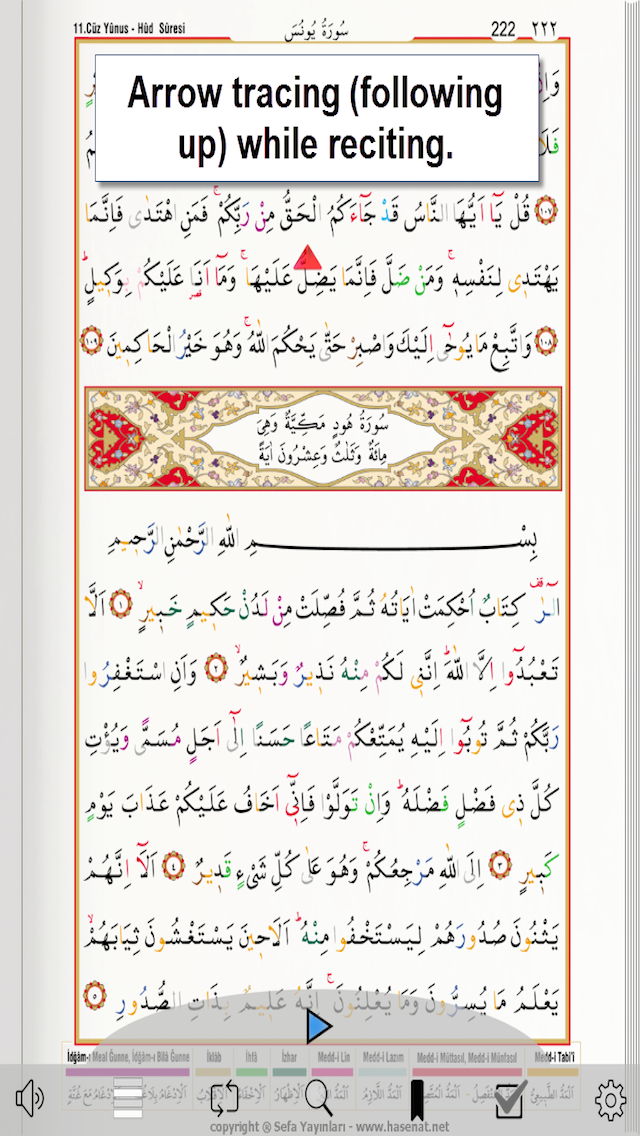 11.Cüz Yûnus - Hûd Sûresi
سُورَةُ يُونُسَ
222 ٢٢٢
Arrow tracing (following
up) while reciting.
قُلْ يَٓا اَيُّهَا النَّاسُ قَدْ جَٓاءَكُمُ الْحَقُّ مِنْ رَبِّكُمْۚ فَمَنِ اهْتَدٰى فَاِنَّمَا
يَهْتَدٖى لِنَفْسِهٖۚ وَمَنْ ضَلَّ فَاِنَّمَا يَضِلُّ عَلَيْهَاۚ وَمَٓا اَنَا۬ عَلَيْكُمْ بِوَكٖيلٍؕ ١٠٨
وَاتَّبِعْ مَا يُوحٰٓى اِلَيْكَ وَاصْبِرْ حَتّٰى يَحْكُمَ اللّٰهُۚ وَهُوَ خَيْرُ الْحَاكِمٖينَ ١٠٩
سُورَةُ هُودٍ مَكِّيَّةٌ وَهِىَ
مِائَةٌ وَثَلٰثٌ وَعِشْرُونَ اٰيَةً
بِسْمِ اللّٰهِ الرَّحْمٰنِ الرَّحٖيمِ
الٓرٰ۠ كِتَابٌ اُحْكِمَتْ اٰيَاتُهُ ثُمَّ فُصِّلَتْ مِنْ لَدُنْ حَكٖيمٍ خَبٖيرٍۙ ١ اَلَّا
تَعْبُدُٓوا اِلَّا اللّٰهَؕ اِنَّنٖى لَكُمْ مِنْهُ نَذٖيرٌ وَبَشٖيرٌۙ ٢ وَاَنِ اسْتَغْفِرُوا
رَبَّكُمْ ثُمَّ تُوبُٓوا اِلَيْهِ يُمَتِّعْكُمْ مَتَاعًا حَسَنًا اِلٰٓى اَجَلٍ مُسَمًّى وَيُؤْتِ
كُلَّ ذٖى فَضْلٍ فَضْلَهُؕ وَاِنْ تَوَلَّوْا فَاِنّٖٓى اَخَافُ عَلَيْكُمْ عَذَابَ يَوْمٍ
كَبٖيرٍ ٣ اِلَى اللّٰهِ مَرْجِعُكُمْۚ وَهُوَ عَلٰى كُلِّ شَىْءٍ قَدٖيرٌ ٤ اَلَٓا اِنَّهُمْ
يَثْنُونَ صُدُورَهُمْ لِيَسْتَخْفُوا مِنْهُؕ اَلَا حٖينَ يَسْتَغْشُونَ ثِيَابَهُمْۙ
يَعْلَمُ مَا يُسِرُّونَ وَمَا يُعْلِنُونَۚ اِنَّهُ عَلٖيمٌ بِذَاتِ الصُّدُورِ ٥
İdğâm-ı Meal Ğunne, İdğâm-ı Bilâ Ğunne İklâb İhfâ İzhar Medd-i Lîn Medd-i Lazım Medd-i Müttasıl, Medd-i Münfasıl Medd-i Tabi'î
copyright @ Sefa Yayınları - www.hasenat.net